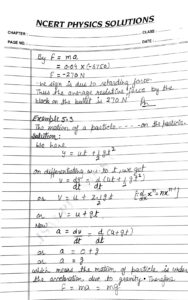 NCERT PHYSICS SOLUTIONS
CHAPTER: CLASS
PAGE NO.: DATE:
By F = ma
= 0.04 × (-6750)
F = -270 N
-ve sign is due to retarding force
Thus the average retarding force by the
block on the bullet is 270 N
Example 5.3
The motion of a particle ----- on the particle.
Solution:
We have
y = ut + 1/2 gt²
on differentiating w.r. to t we get
v = dy/dt = d/dt (ut + 1/2 gt²)
or v = u + 2·1/2 gt [d/dx xⁿ = nxⁿ⁻¹]
or v = u + gt
Now
a = dv/dt = d/dt (u + gt)
or a = 0 + g
or a = g
which means the motion of particle is under
the acceleration due to gravity. Therefore
F = ma = mg